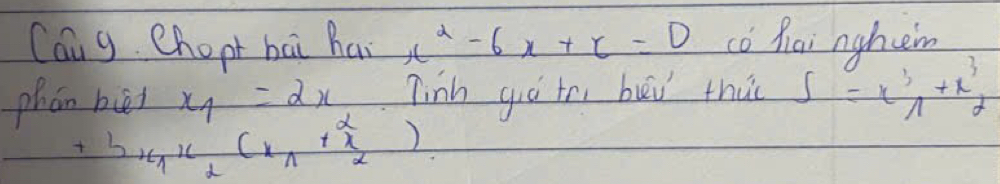 Câu 9. Cho pt bài hai x² - 6x + c = 0 có hai nghiệm
phân biệt x₁ = 2x. Tính giá trị biểu thức S = x₁³ + x₂³
+ 3x₁x₂ (x₁ + x₂²)